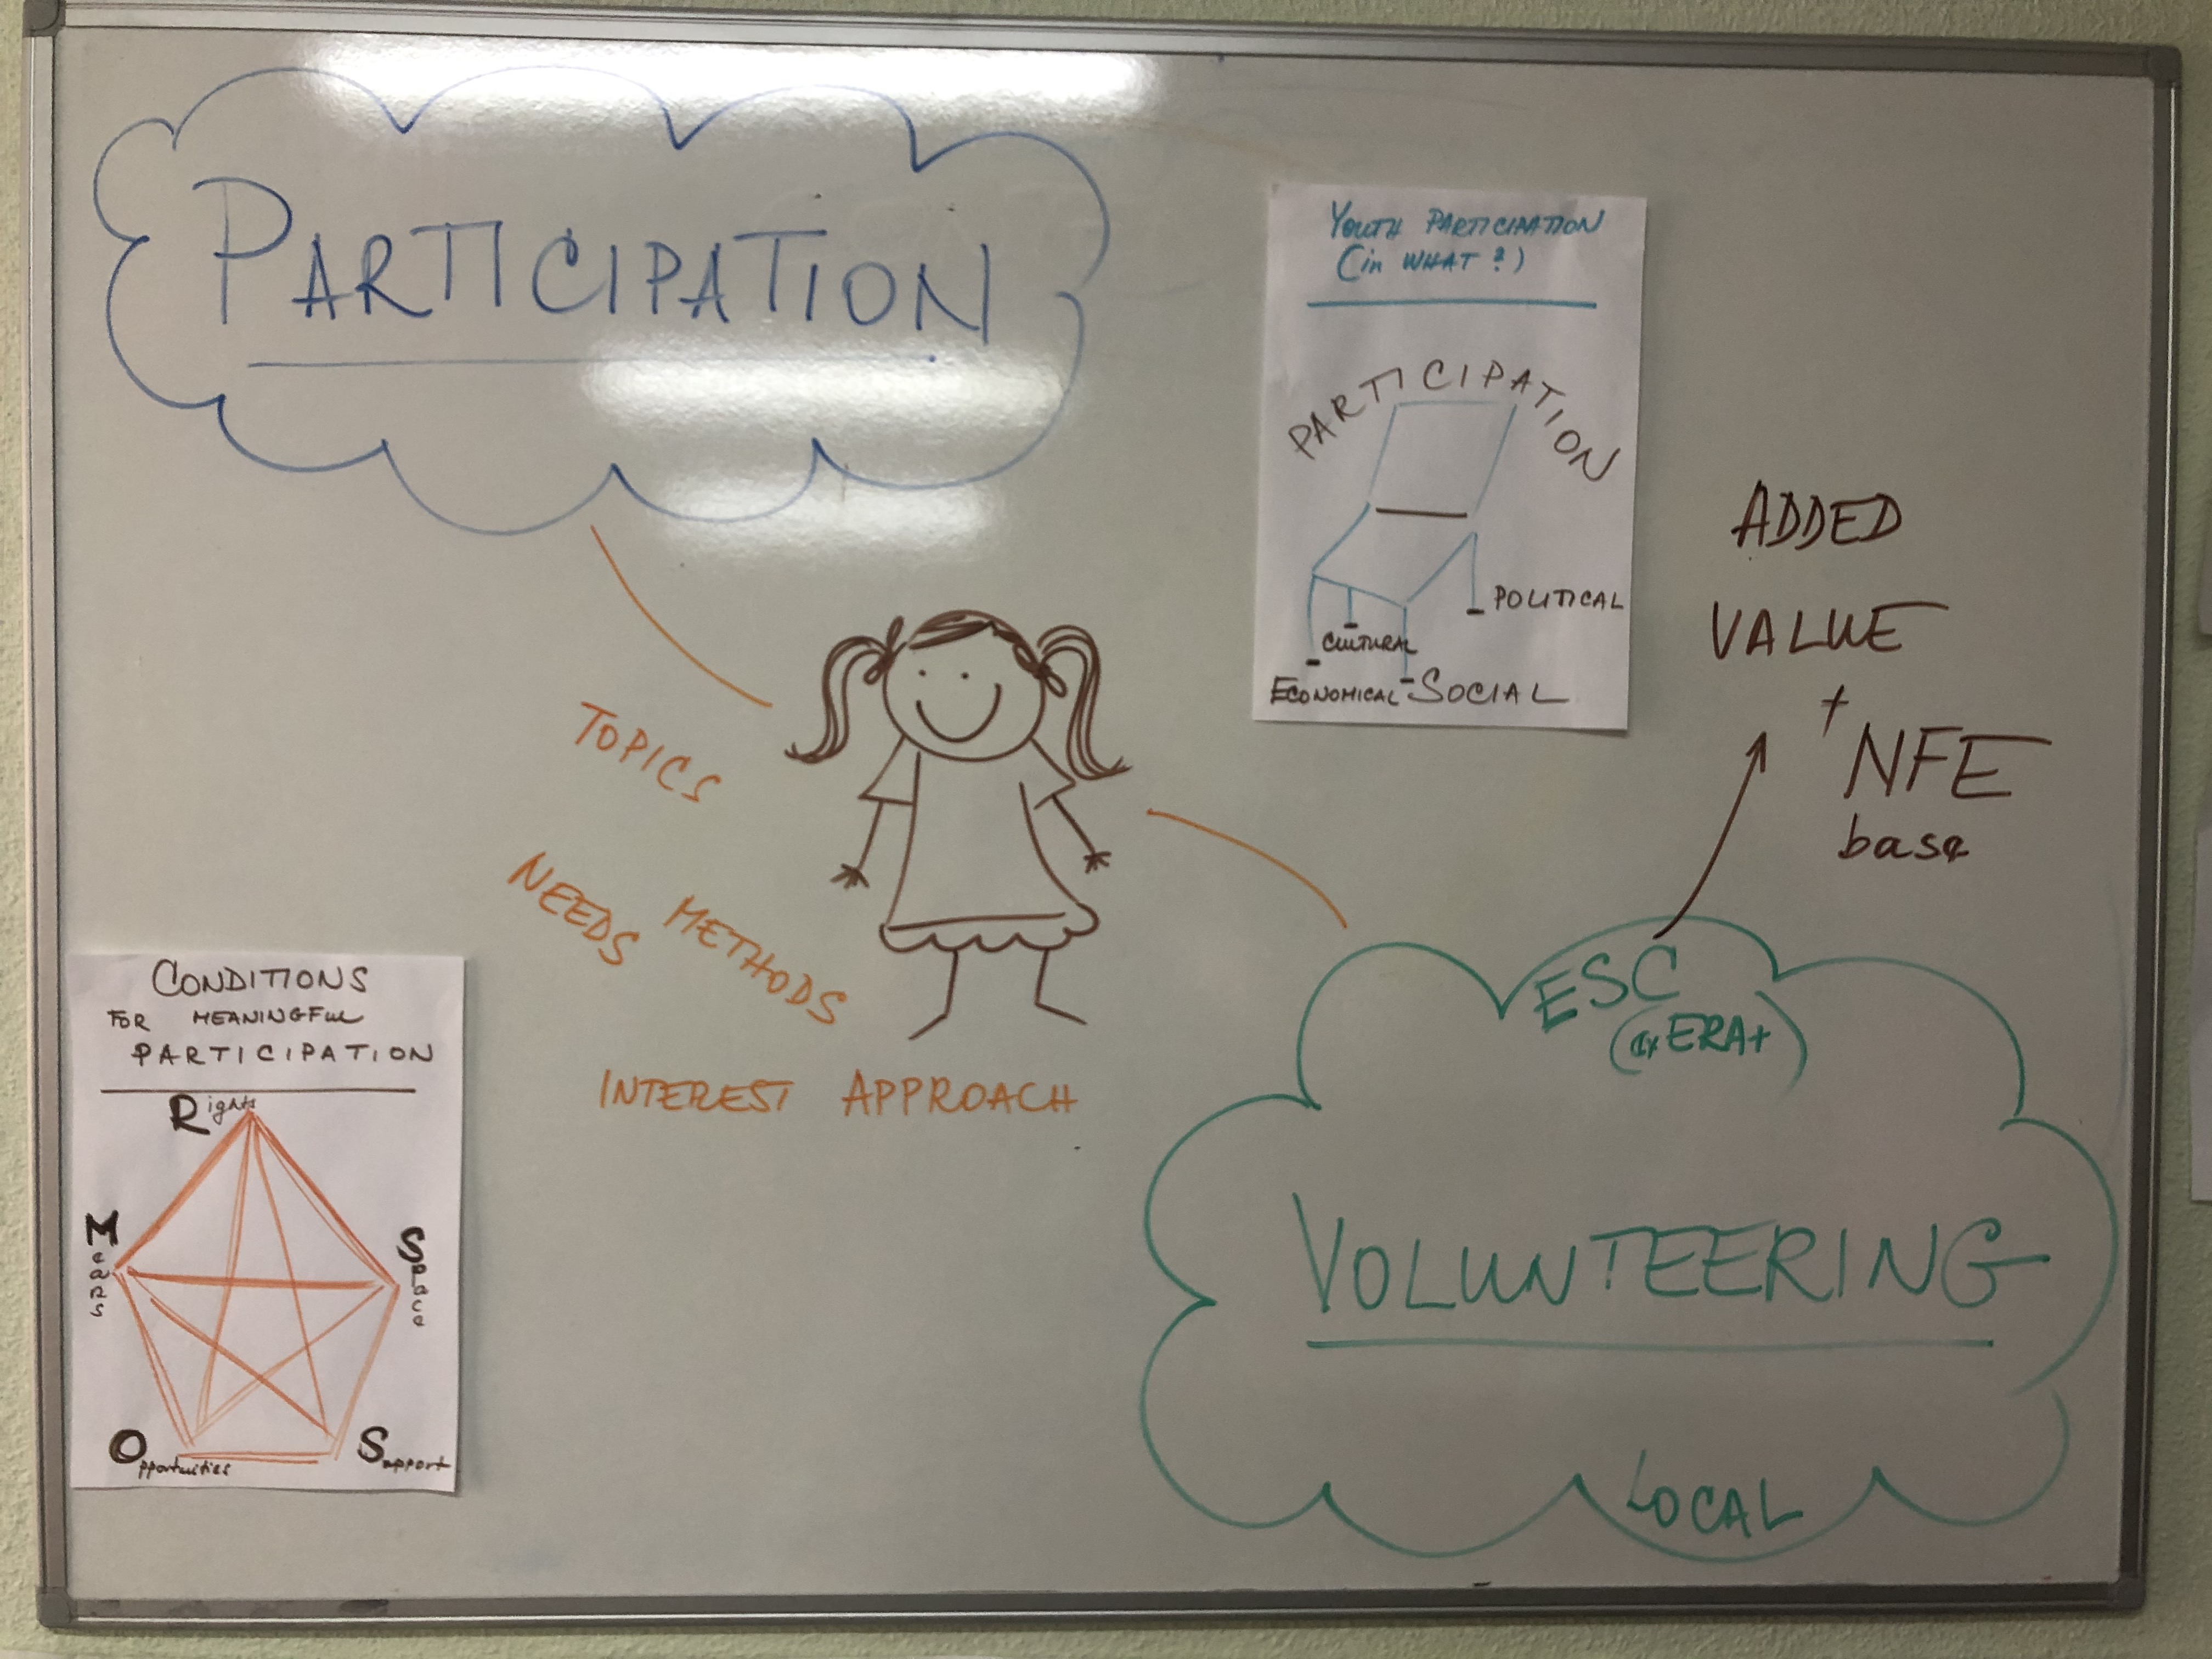 PARTICIPATION
YOUTH PARTICIPATION
(in WHAT?)
PARTICIPATION
POLITICAL
CULTURAL
ECONOMICAL
SOCIAL
ADDED
VALUE
+
NFE
base
TOPICS
NEEDS
METHODS
INTEREST APPROACH
CONDITIONS
FOR MEANINGFUL
PARTICIPATION
Rights
Means
Space
Opportunities
Support
ESC
(ex ERA+)
VOLUNTEERING
LOCAL